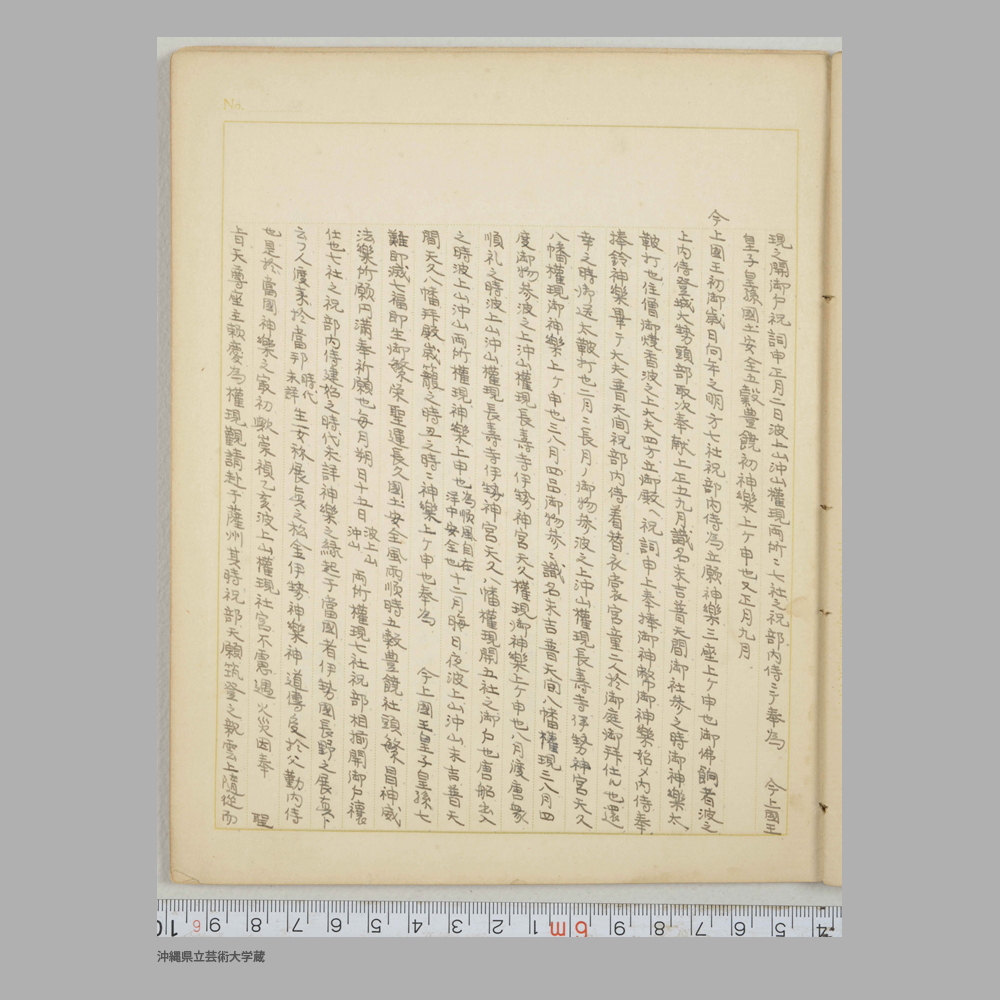 No.
現之開御戸祝詞申正月二日波上山沖山權現両所ニ七社之祝部内侍ニテ奉為 今上國王
皇子皇孫國土安全五穀豊饒初神樂上ケ申也又正月九月
今上國王初御歳日向年之明方七社祝部内侍為立願神樂三座上ケ申也御佛餉者波之
上内侍登城大勢頭部取次奉献上正五九月識名末吉普天間御社参之時御神樂太
鞁打也住僧御燒香波之上大夫四方立御殿へ祝詞申上奉捧御神幣御神樂始メ内侍奉
捧鈴神樂畢テ大夫普天間祝部内侍着替衣裳宮童二人於御庭御拜仕ル也還
幸之時御送太鞁打也二月ニ長月ノ御物参波之上沖山權現長壽寺伊勢神宮天久
八幡權現御神樂上ケ申也三八月四品御物参ニ識名末吉普天间八幡權現三八月四
度御物参波之上沖山權現長壽寺伊勢神宮天久權現御神樂上ケ申也八月渡唐衆
順礼之時波上山沖山權現長壽寺伊勢神宮天久八幡權現開五社之御戸也唐船出入
之時波上山沖山両所權現神樂上申也為順風自在洋中安全也十二月晦日夜波上山沖山末吉普天
間天久八幡拜殿歳籠之時丑之時ニ神樂上ケ申也奉為 今上國王皇子皇孫七
難即滅七福即生御繁榮聖運長久國土安全風雨順時五穀豊饒社頭繁昌神威
法樂所願円満奉祈願也每月朔日十五日波上山沖山両所權現七社祝部相揃開御戸禳
仕也七社之祝部内侍建始之時代未詳神樂之緣起于當國者伊勢國長野之展眞ト
云フ人度来於當邦時代未詳生女祢展眞之松金伊勢神樂神道傳受於父勤内侍
也是於當國神樂之最初歟崇禎乙亥波上山權現社宮不慮遇火災因奉 聖
旨天尊座主頼慶為權現觀請赴于薩州其時祝部天願筑登之親雲上隨從而
10 9 8 7 6 5 4 3 2 1 6m 9 8 7 6 5 4
沖縄県立芸術大学蔵